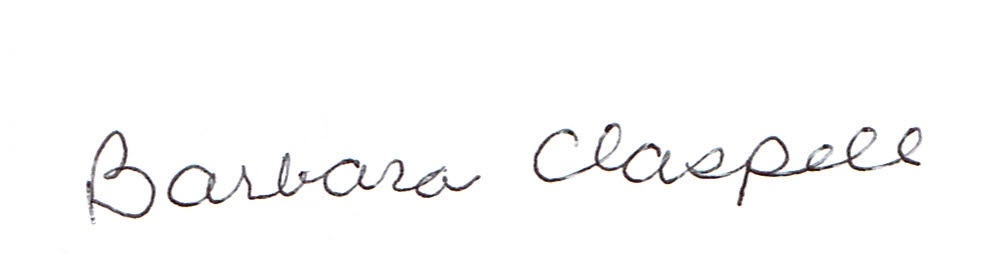 Barbara Claspell